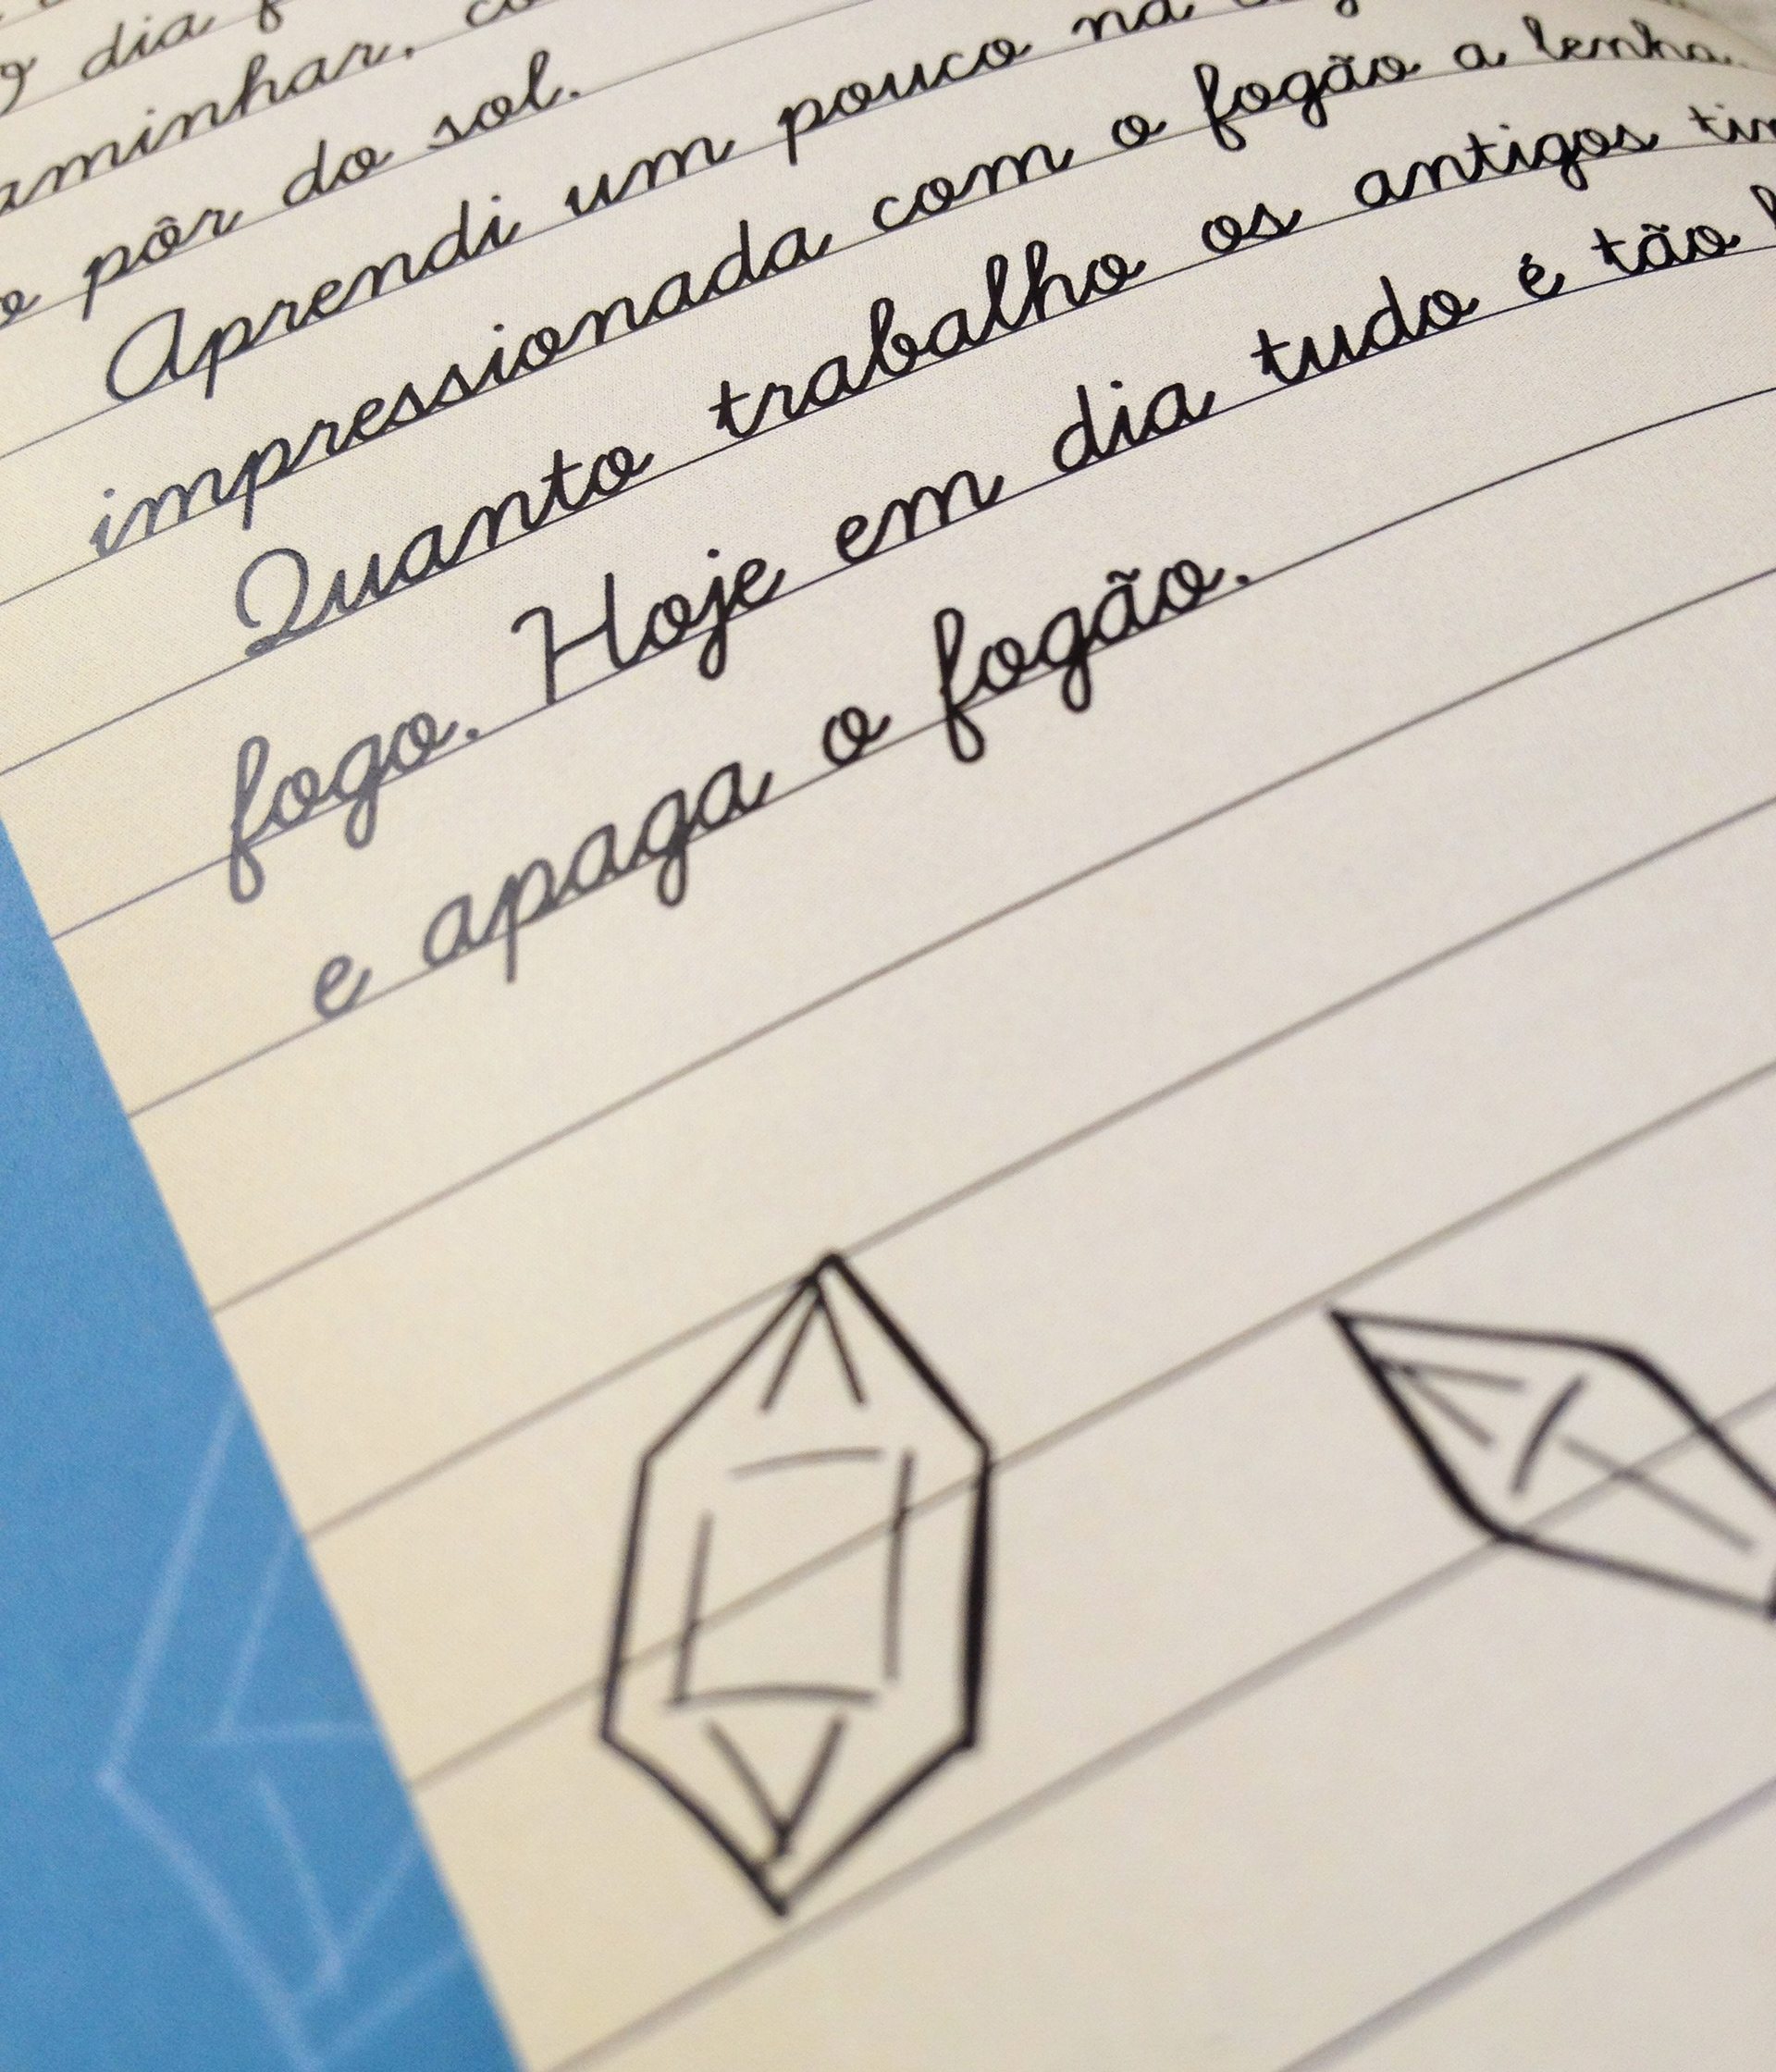 dia
do sol.
pôr do sol.
Aprendi um pouco na
impressionada com o fogão a lenha.
Quanto trabalho os antigos
fogo. Hoje em dia tudo é tão
e apaga o fogão.